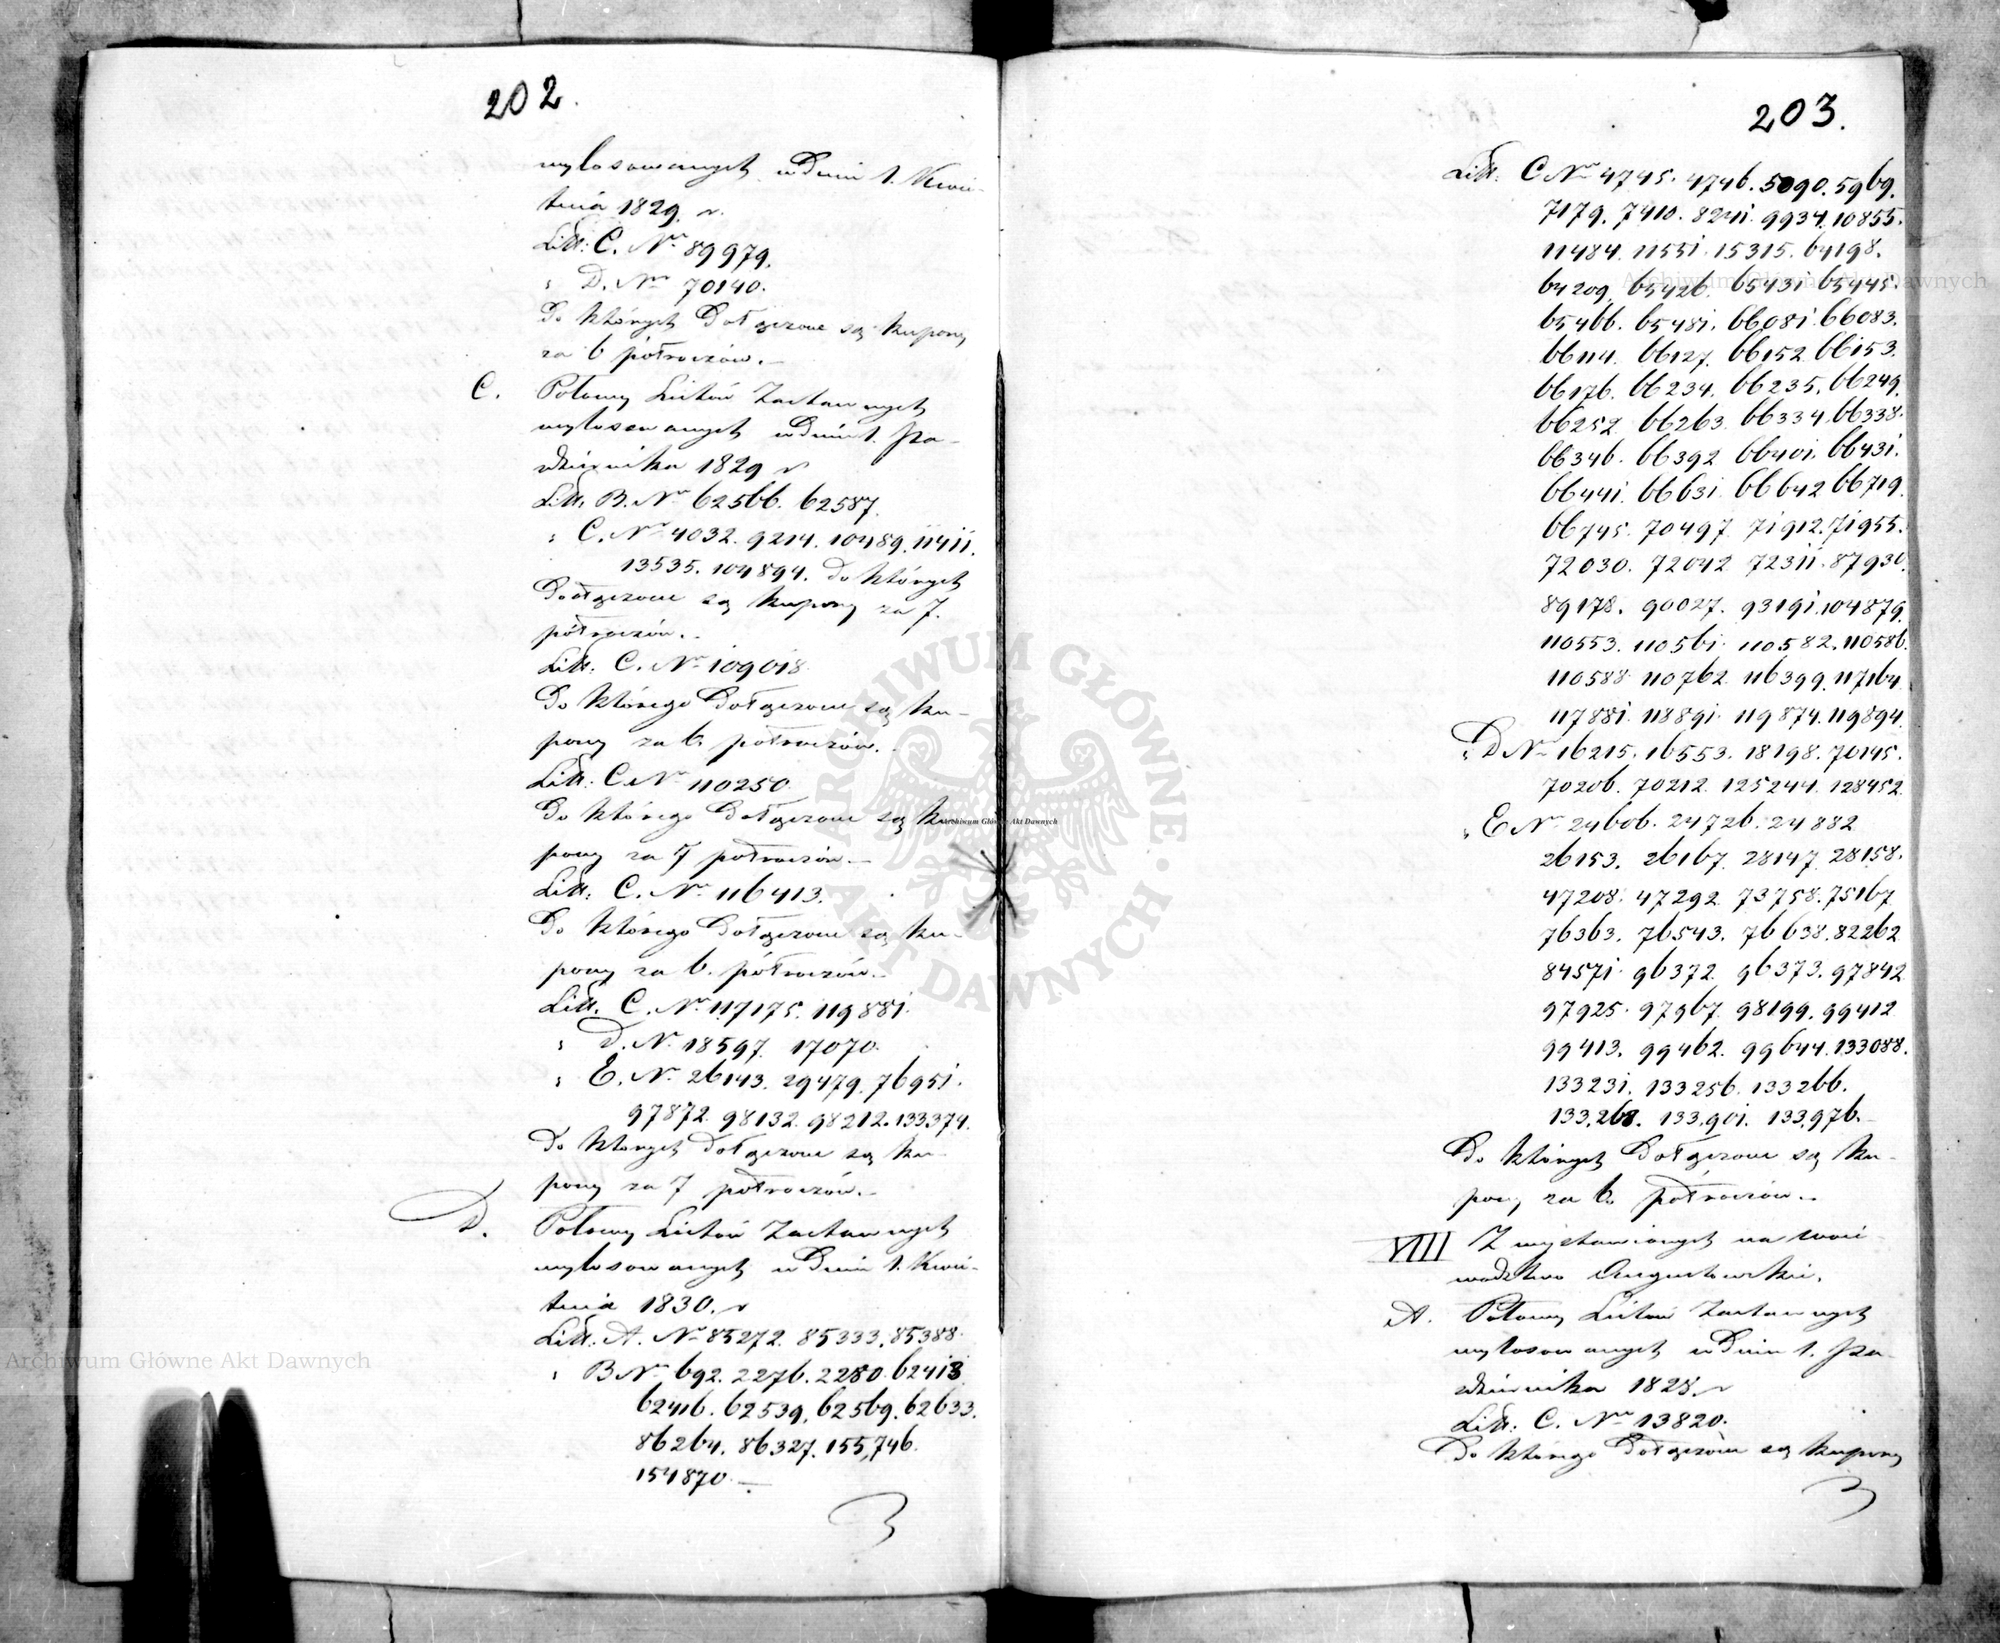 202.
wylosowanych w Dniu 1. Kwie-
tnia 1829. r.
Litt: C. Nr 89979.
" D. Nr 70140.
Do których Dołączone są kupony
za 6 półroczów.
C. Połowy Listów Zastawnych
wylosowanych w Dniu 1. Paź-
dziernika 1829 r
Litt. B. Nr 62566. 62587.
" C. Nr 4032. 9214. 10489. 11411.
13535. 104894. Do których
Dołączone są kupony za 7.
półroczów.
Litt: C. Nr 109018.
Do którego Dołączone są ku-
pony za 6. półroczów.
Litt: C. Nr 110250.
Do którego Dołączone są ku-
pony za 7 półroczów.
Litt: C. Nr 116413.
Do którego Dołączone są ku-
pony za 6. półroczów.
Litt. C. Nr 117175. 119881.
" D. Nr 18597. 17070.
" E. Nr 26143. 29479. 76951.
97872. 98132. 98212. 133,374.
Do których dołączone są ku-
pony za 7 półroczów.
D. Połowy Listów Zastawnych
wylosowanych w Dniu 1. Kwie-
tnia 1830. r
Litt: A. Nr 85272. 85333. 85388.
" B Nr 692. 2276. 2280. 62413.
62416. 62539. 62569. 62633.
86264. 86327. 155,746.
154870.
203.
Litt: C Nr 4745. 4746. 5090. 5969.
7179. 7410. 8241. 9934. 10855.
11484. 11551. 15315. 64198.
64209. 65426. 65431. 65445.
65466. 65481. 66081. 66083.
66114. 66127. 66152. 66153.
66176. 66234. 66235. 66249.
66252. 66263. 66334. 66338.
66346. 66392. 66401. 66431.
66441. 66631. 66642. 66719.
66745. 70497. 71912. 71955.
72030. 72042. 72311. 87930.
89178. 90027. 93191. 104879.
110553. 110561. 110582. 110586.
110588. 110762. 116399. 117164.
117881. 118891. 119874. 119894.
" D Nr 16215. 16553. 18198. 70145.
70206. 70212. 125244. 128452.
" E Nr 24606. 24726. 24882
26153. 26167. 28147. 28158.
47208. 47292. 73758. 75167
76363. 76543. 76638. 82262
84571. 96372. 96373. 97842
97925. 97967. 98199. 99412
99413. 99462. 99644. 133088.
133231. 133256. 133266.
133,268. 133,901. 133,976.
Do których Dołączone są ku-
pony za 6. półroczów.
VIII Z wystawionych na woie-
wództwo Augustowskie.
A. Połowy Listów Zastawnych
wylosowanych w Dniu 1. Paź-
dziernika 1828. r
Litt. C. Nr 13820.
Do którego Dołączone są kupony
ARCHIWUM GŁÓWNE AKT DAWNYCH
Archiwum Główne Akt Dawnych
Archiwum Główne Akt Dawnych
Archiwum Główne Akt Dawnych